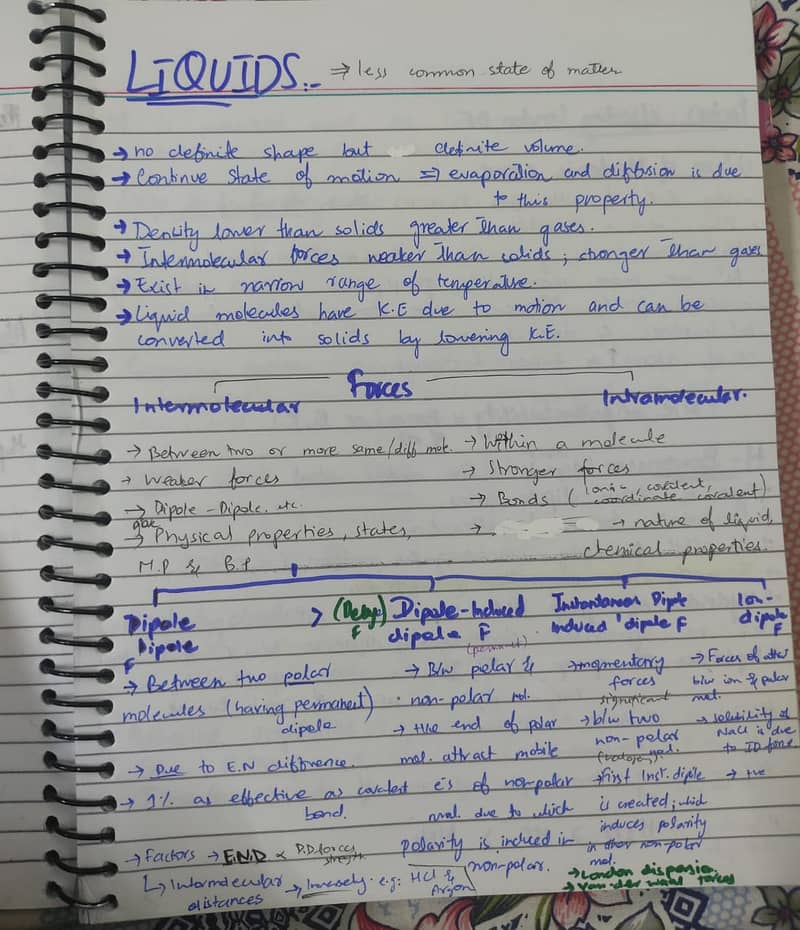 LIQUIDS:- ⇒ less common state of matter
→ no definite shape but definite volume.
→ Continue state of motion ⇒ evaporation and diffusion is due
to this property.
→ Density lower than solids greater than gases.
→ Intermolecular forces weaker than solids; stronger than gases
→ Exist in narrow range of temperature.
→ Liquid molecules have K.E due to motion and can be
converted into solids by lowering K.E.
Forces
Intermolecular
→ Between two or more same/diff mol.
→ Weaker forces
→ Dipole-Dipole. etc.
→ Physical properties, states,
M.P & B.P
Intramolecular.
→ Within a molecule
→ Stronger forces
→ Bonds (Ionic, covalent,
coordinate covalent)
→ nature of liquid,
chemical properties.
Dipole
Dipole
F
→ Between two polar
molecules (having permanent)
dipole
→ Due to E.N difference.
→ 1% as effective as covalent
bond.
→ Factors → E.N.D ∝ D.D.forces
strength
↳ Intermolecular
distances → Inversely.
> (Debye) Dipole-Induced
F dipole F
(permanent)
→ B/w polar &
non-polar mol.
→ +ive end of polar
mol. attract mobile
e's of non-polar
mol. due to which
polarity is induced in
non-polar.
e.g: HCl &
Argon
Instantaneous Dipole
Induced dipole F
→ momentary
forces
significant
→ b/w two
non-polar
→ First Inst. dipole
is created; which
induces polarity
in other non-polar
mol.
→ London dispersion
→ Van der Waal forces
Ion-
dipole
F
→ Forces of
b/w ion & polar
mol.
→ solubility of
NaCl is due
to ID force
→ +ve